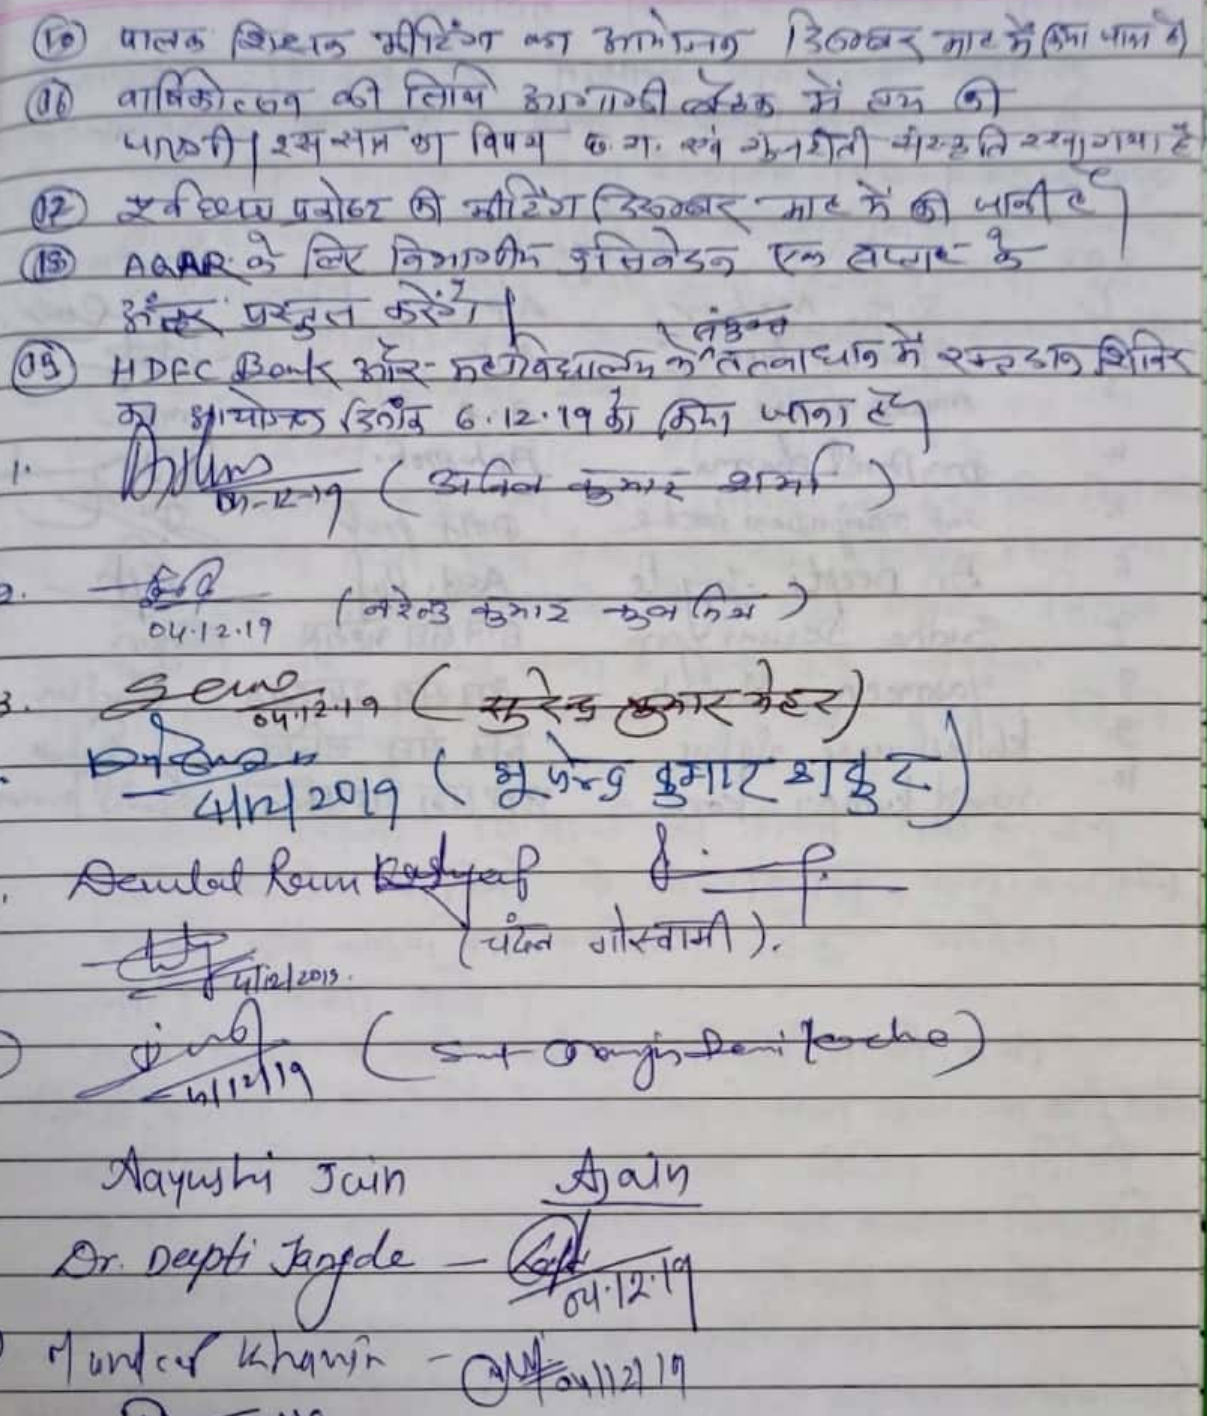 पालक शिक्षक मीटिंग का आयोजन दिसम्बर माह में किया जाना है
(16) वार्षिकोत्सव की तिथि आगामी बैठक में तय की
जाएगी। इस सत्र का विषय छ.ग. एवं गुजराती संस्कृति रखा गया है
(17) की मीटिंग दिसम्बर माह में की जानी है।
(18) AQAR के लिए विभागीय प्रतिवेदन एक सप्ताह के
अंदर प्रस्तुत करेंगे।
संयुक्त
(19) HDFC Bank और महाविद्यालय के तत्वाधान में रक्तदान शिविर
का आयोजन दिनाँक 6.12.19 को किया जाना है।
1. 04-12-19 (अनिल कुमार शर्मा)
2. 04.12.19 (नरेन्द्र कुमार)
3. 04.12.19 (सुरेन्द्र कुमार मेहर)
4/12/2019 (भूपेन्द्र कुमार ठाकुर)
Ram Kashyap
(चंदन गोस्वामी).
4/12/2019.
4/12/19 (Smt
Aayushi Jain AJain
Dr. Deepti Jangde - 04.12.19
04/12/19